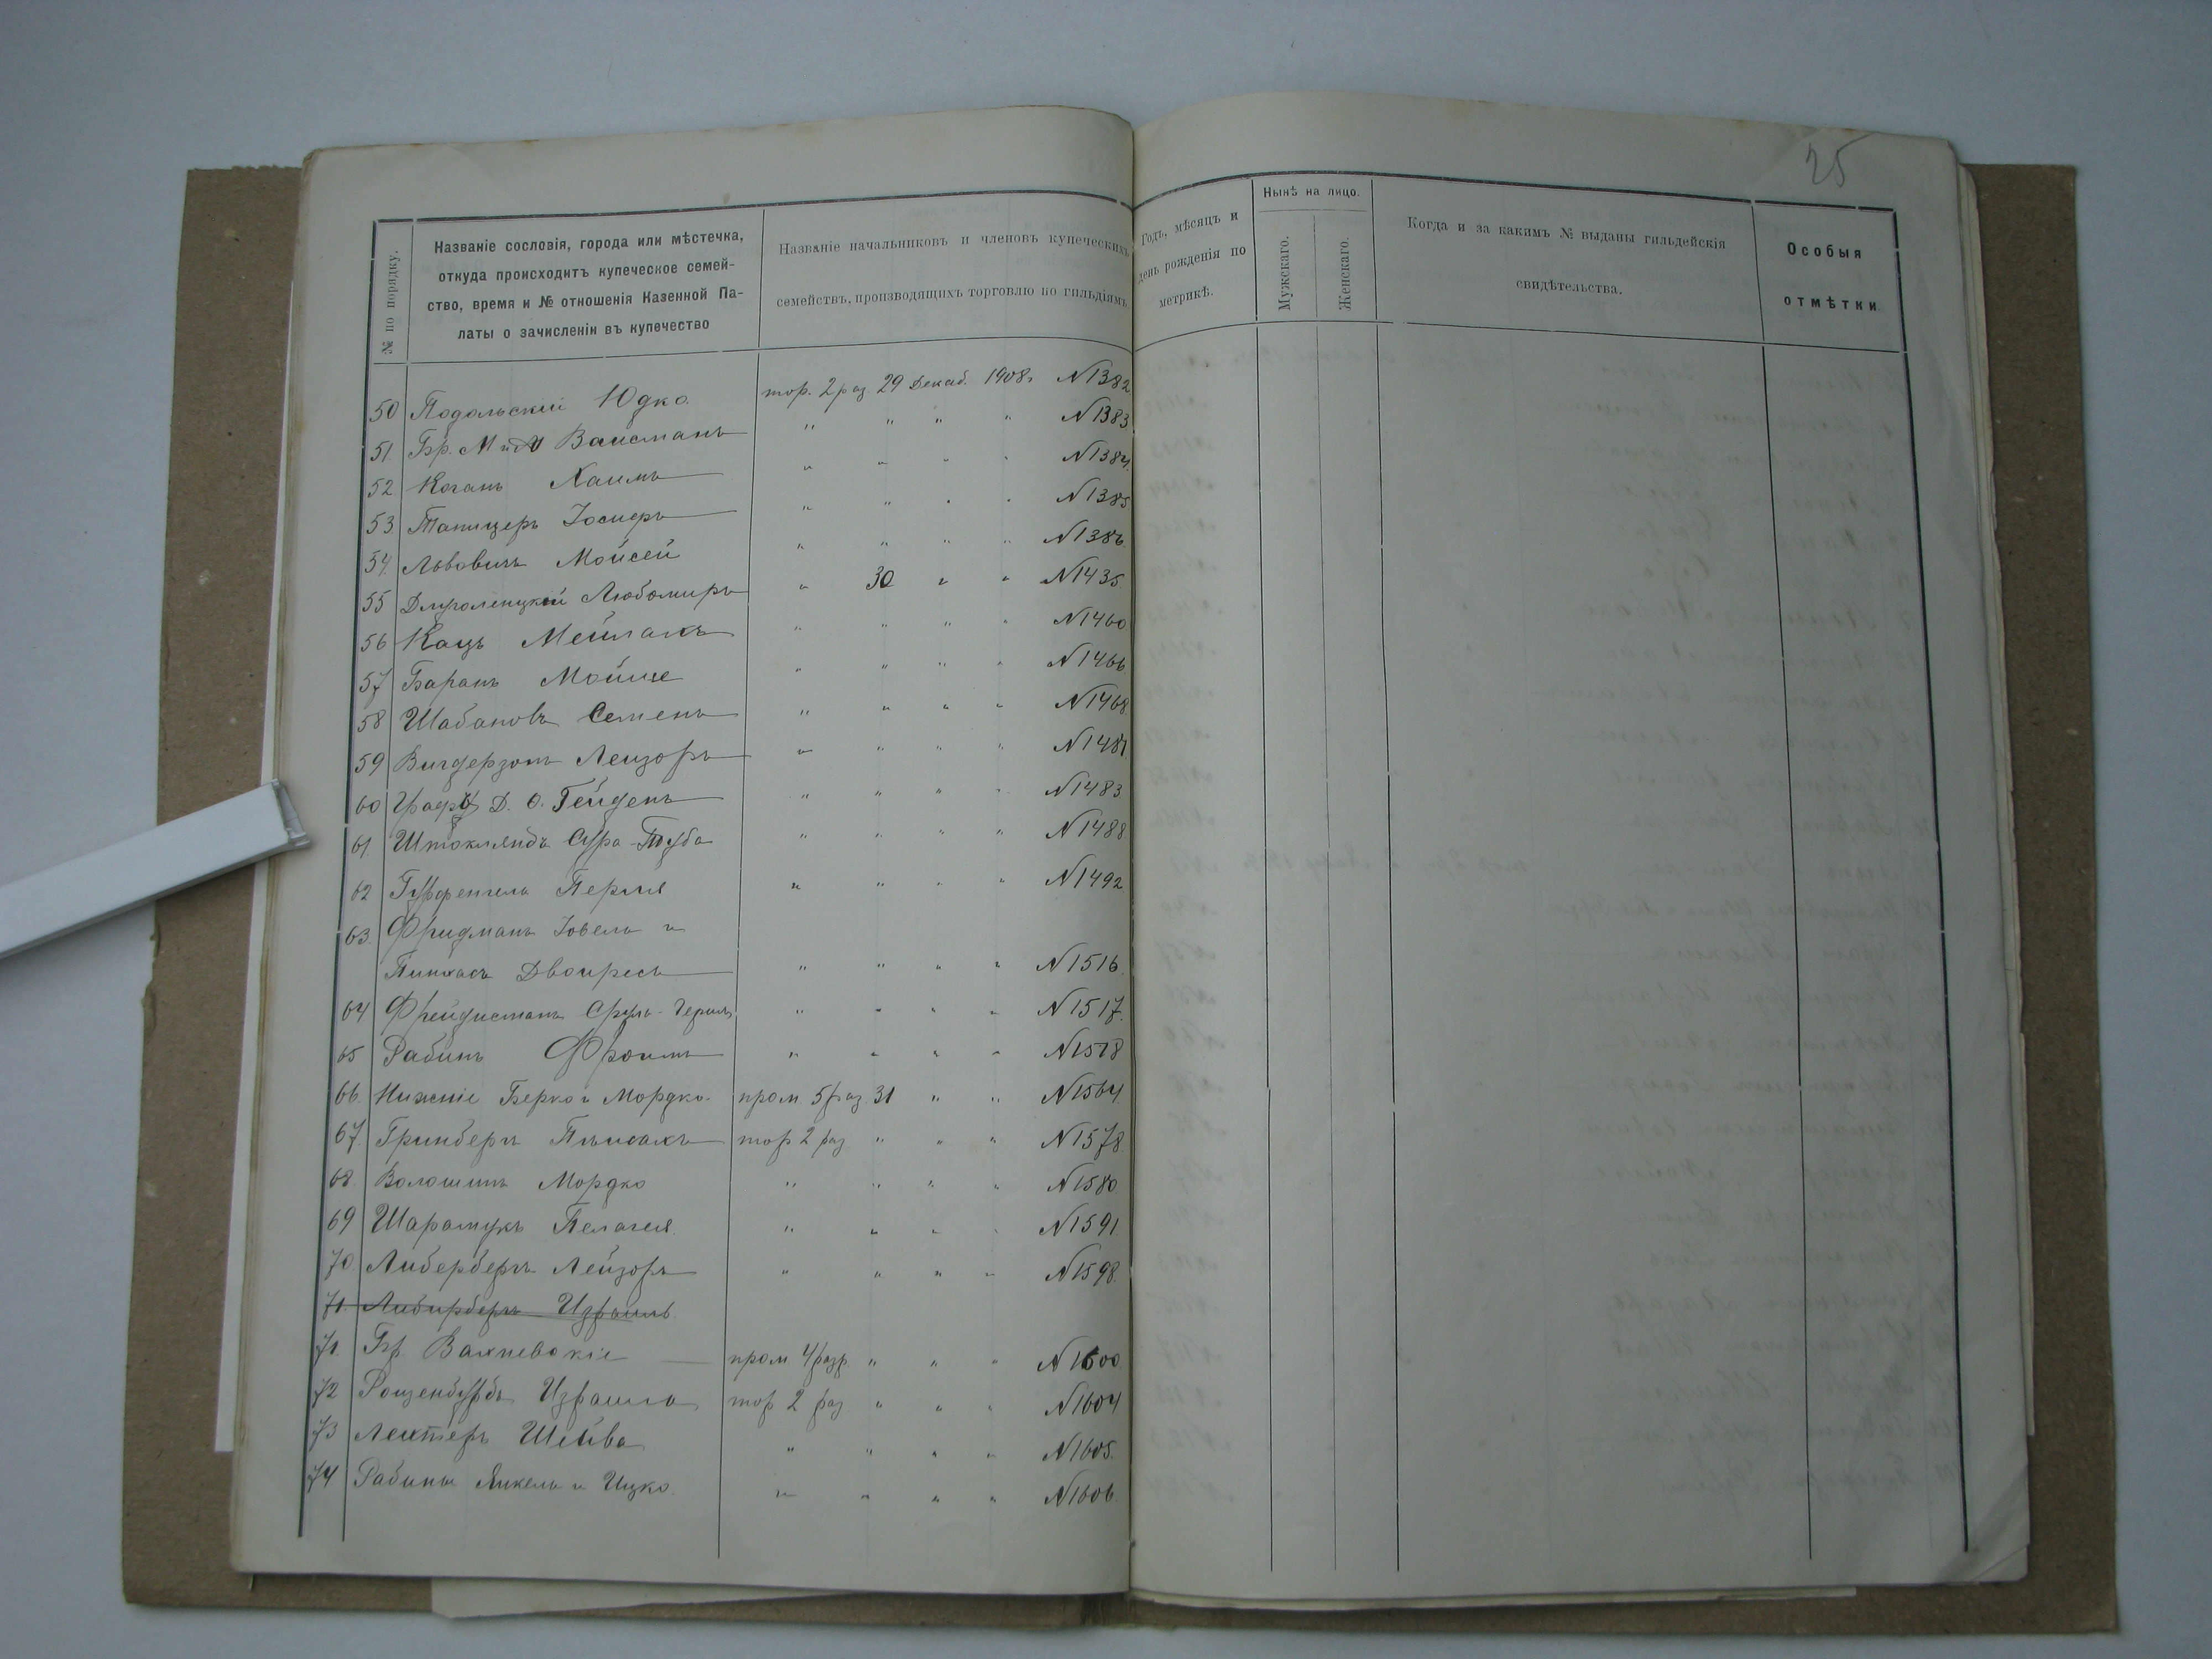 25
№ по порядку.
Названіе сословія, города или мѣстечка,
откуда происходитъ купеческое семей-
ство, время и № отношенія Казенной Па-
латы о зачисленіи въ купечество
Названіе начальниковъ и членовъ купеческихъ
семействъ, производящихъ торговлю по гильдіямъ
Годъ, мѣсяцъ и
день рожденія по
метрикѣ.
Нынѣ на лицо.
Мужскаго.
Женскаго.
Когда и за какимъ № выданы гильдейскія
свидѣтельства.
Особыя
отмѣтки
50 Подольскій Юдко тор. 2 раз 29 Декаб. 1908г N1382
51. Бр. М и М Вайсманъ " " " " N1383
52. Коганъ Хаимъ " " " " N1384.
53 Тапицеръ Іосифъ " " " " N1385
54. Львовичъ Мойсей " " " " N1386.
55 Длуголенцкій Любомиръ " 30 " " N1435.
56 Кацъ Мейлахъ " " " " N1460
57 Баранъ Мойше " " " " N1466.
58 Шабановъ Семенъ " " " " N1468.
59 Вигдерзонъ Лейзоръ " " " " N1481
60 Графъ Д. О. Гейденъ " " " " N1483.
61. Штокляндъ Сура-Туба " " " " N1488
62 Перля " " " " N1492
63. Фридманъ Іовель и
Пинхасъ Двойресъ " " " " N1516.
64 Сруль- " " " " N1517.
65 Рабинъ Фроимъ " " " " N1518
66. Нижніе Берко и Мордко пром. 5 раз 31 " " N1564.
67. Гринбергъ тор 2 раз. " " " N1578.
68. Волошинъ Мордко " " " " N1580
69 Шарамукъ Пелагея. " " " " N1591.
70. Либербергъ Лейзоръ " " " " N1598.
71. Либербергъ Израиль.
71. Бр. Вахневскіе пром. 4 разр. " " " N1600.
72 Израиль тор 2 раз. " " " N1604
73 Лехтеръ Шейва " " " " N1605.
74 Рабины Янкель и Ицко. " " " " N1606.